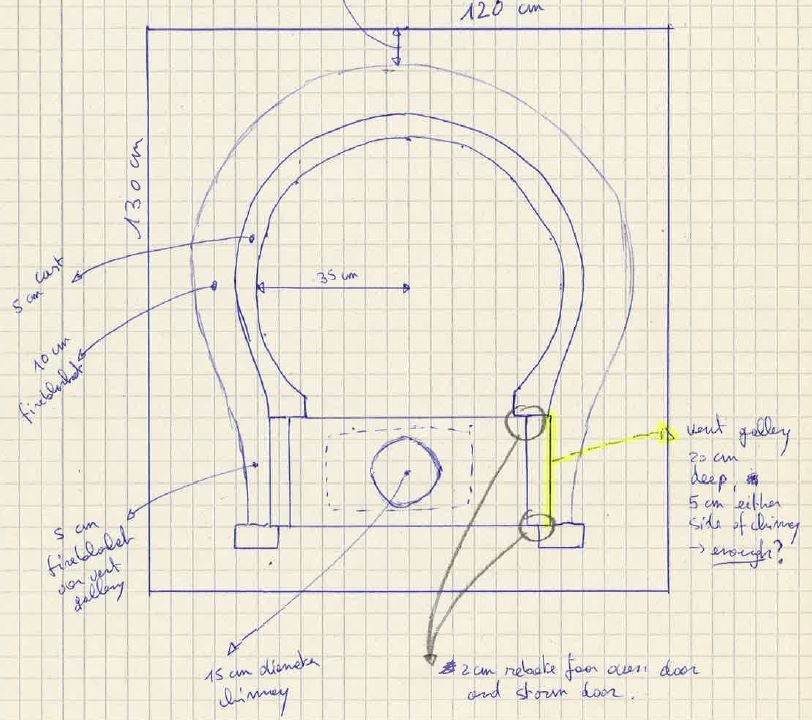 120 cm
130 cm
35 cm
5 cm cast
10 cm
fireblanket
5 cm
fireblanket
vent
gallery
15 cm diameter
chimney
vent gallery
20 cm
deep,
5 cm either
side of chimney
→ enough?
2 cm rebate for oven door
and storm door.